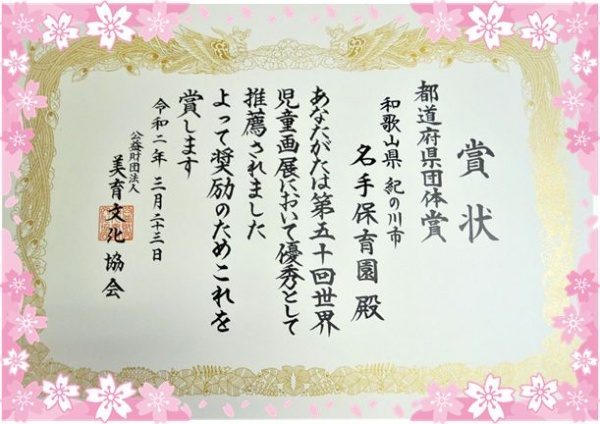 賞状
都道府県団体賞
和歌山県 紀の川市
名手保育園 殿
あなたがたは第五十回世界
児童画展において優秀として
推薦されました
よって奨励のためこれを
賞します
令和二年 三月二十三日
公益財団法人
美育文化協会